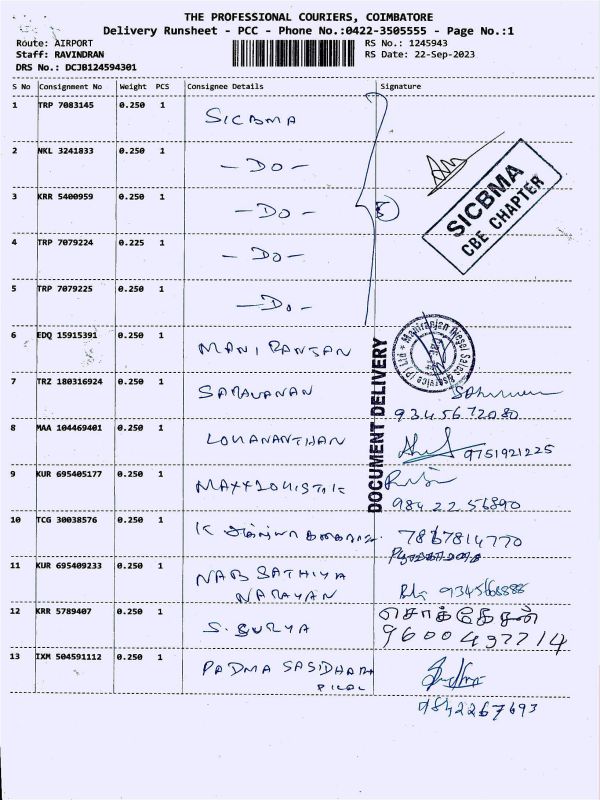 THE PROFESSIONAL COURIERS, COIMBATORE
Delivery Runsheet - PCC - Phone No.:0422-3505555 - Page No.:1
Route: AIRPORT
Staff: RAVINDRAN
DRS No.: DCJB124594301
RS No.: 1245943
RS Date: 22-Sep-2023
S No Consignment No Weight PCS Consignee Details Signature
1 TRP 7083145 0.250 1 SICBMA
2 NKL 3241833 0.250 1 - Do -
3 KRR 5400959 0.250 1 - Do - 5
4 TRP 7079224 0.225 1 - Do -
5 TRP 7079225 0.250 1 - Do -
SICBMA
CBE CHAPTER
6 EDQ 15915391 0.250 1 MANI RANJAN
Maniranjan Diesel Sales & Service (P) Ltd
DOCUMENT DELIVERY
7 TRZ 180316924 0.250 1 SARAVANAN
9345672080
8 MAA 104469401 0.250 1 LOHANANTHAN 9751921225
9 KUR 695405177 0.250 1 MAXXLOGISTIK
984 22 56890
10 TCG 30038576 0.250 1 K 7867814770
11 KUR 695409233 0.250 1 NAB SATHIYA
NARAYAN
12 KRR 5789407 0.250 1 S. SURYA
9600497714
13 IXM 504591112 0.250 1 PADMA SASIDHARA
PILAI
9842267693